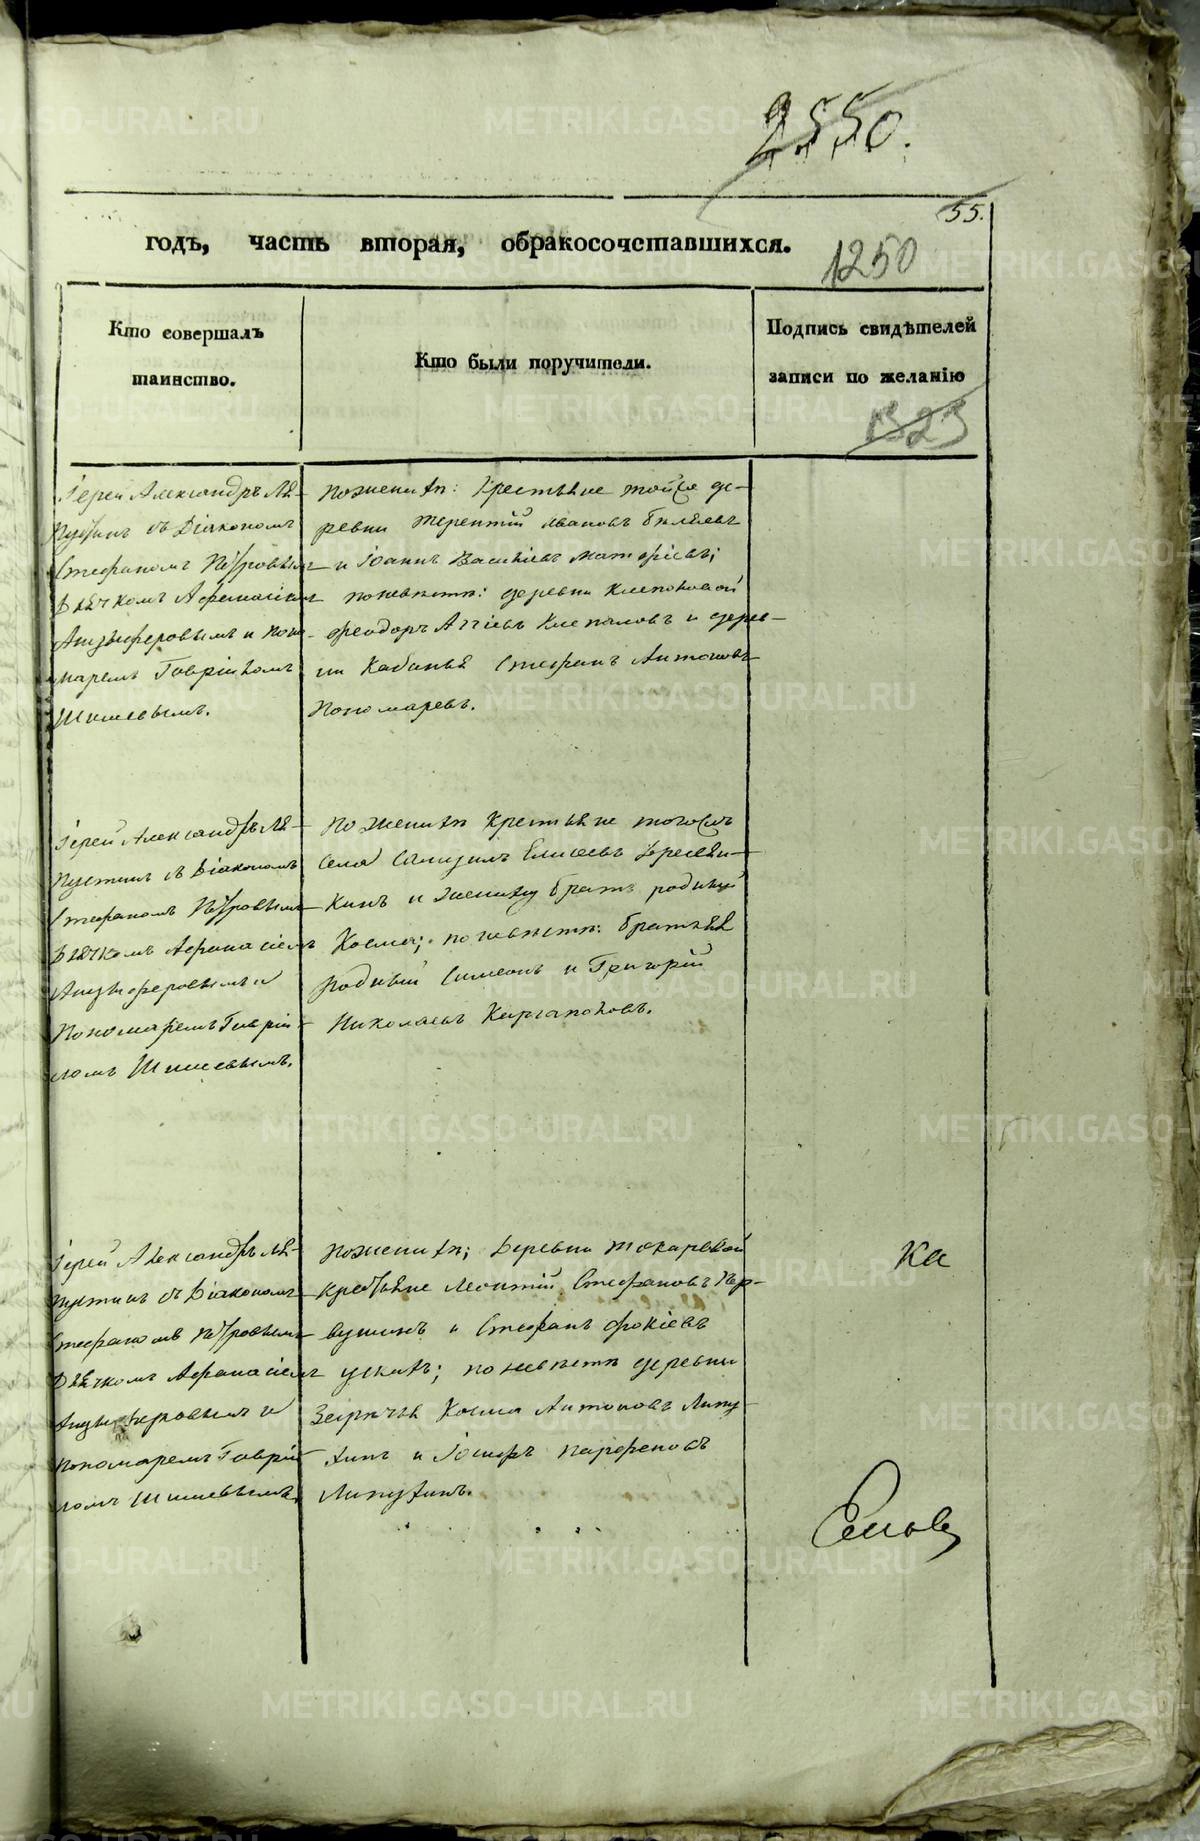 2550.
55.
годъ, часть вторая, обракосочетавшихся.
1250
Кто совершалъ
таинство.
Кто были поручители.
Подпись свидѣтелей
записи по желанію
1323
Іерей Александръ Ля-
пустинъ съ Діакономъ
Стефаномъ Петровымъ
Дьячкомъ Афанасіемъ
Анцыферовымъ и поно-
маремъ Гавріиломъ
Шишевымъ.
По женихѣ: Крестьяне тойже де-
ревни Терентій Ивановъ Бѣляевъ
и Іоаннъ Васильевъ
по невѣстѣ: деревни Клепаловой
Феодоръ Клепаловъ и дерев-
ни Кабанья Стефанъ Антоновъ
Пономаревъ.
Іерей Александръ Ля-
пустинъ съ Діакономъ
Стефаномъ Петровымъ
Дьячкомъ Афанасіемъ
Анцыферовымъ и
Пономаремъ Гаврі-
ломъ Шишевымъ.
По женихѣ Крестьяне тогожъ
села Елисеевъ
и жениху братъ родный
Косма; по невѣстѣ: братья
родныи Симеонъ и Григорій
Николаевы Каргаполовы.
Іерей Александръ Ля-
пустинъ съ Діакономъ
Стефаномъ Петровымъ
Дьячкомъ Афанасіемъ
Анцыферовымъ и
Пономаремъ Гаврі-
ломъ Шишевымъ.
По женихѣ; Деревни Токаревой
крестьяне Леонтій Стефановъ Пер-
вушинъ и Стефанъ Фокіевъ
по невѣстѣ деревни
Косма Антоновъ Липу-
хинъ и Іосифъ Парфеновъ
Липухинъ.
ка